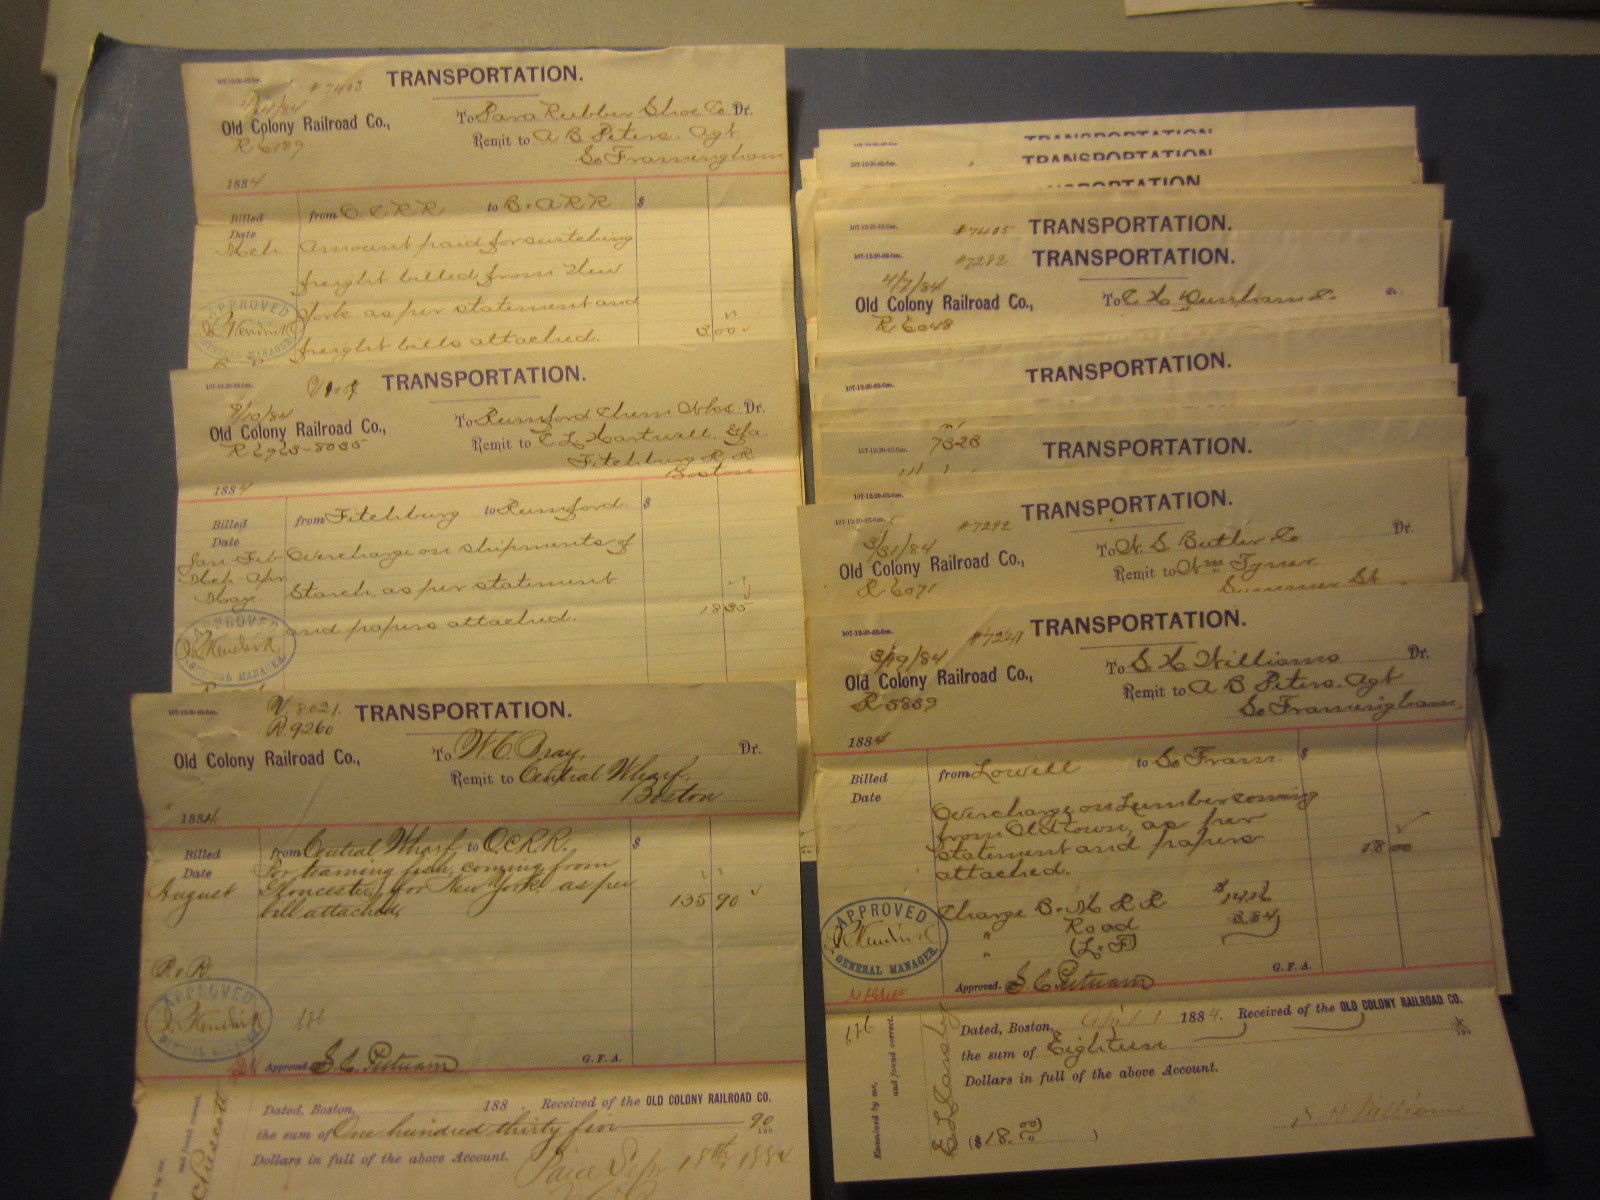 107-12-20-82-6m.
#7403
TRANSPORTATION.
Old Colony Railroad Co.,
R 6189
To Para Rubber Shoe Co Dr.
Remit to A B Peters. Agt
So Framingham
1884
Billed
Date
from O.C.R R to B. & A R R $
Mch. Amount paid for switching
freight billed from New
York as per statement and
freight bills attached.
3 00
APPROVED
J R Kendrick
GENERAL MANAGER.
107-12-20-82-6m.
TRANSPORTATION.
9/10/84
Old Colony Railroad Co.,
R 6923-8035
To Rumford Chem Wks. Dr.
Remit to C L Hartwell,
Fitchburg R. R.
Boston
1884
Billed
Date
from Fitchburg to Rumford. $
Jan Feb
Mch Apr
May
Overcharge on shipments of
Starch, as per statement
and papers attached.
18 35
APPROVED
J R Kendrick
GENERAL MANAGER.
107-12-20-82-6m.
V. 8021.
R 9260
TRANSPORTATION.
Old Colony Railroad Co.,
To W. C. Bray, Dr.
Remit to Central Wharf.
Boston
1884
Billed
Date
August
from Central Wharf to O.C.R.R. $
For teaming fish, coming from
Gloucester, for New York as per
bill attached,
135 90
APPROVED
J R Kendrick
GENERAL MANAGER
176
Approved. S. C. Putnam G. F. A.
Dated, Boston, 188 . Received of the OLD COLONY RAILROAD CO.
the sum of One hundred thirty five 90/100
Dollars in full of the above Account.
Paid Sept 18th, 1884
and found correct.
TRANSPORTATION.
TRANSPORTATION.
TRANSPORTATION.
107-12-20-82-6m.
#7405
TRANSPORTATION.
107-12-20-82-6m.
#7282
TRANSPORTATION.
4/7/84
Old Colony Railroad Co.,
R 6048
To
107-12-20-82-6m.
TRANSPORTATION.
107-12-20-82-6m.
7323
TRANSPORTATION.
107-12-20-82-6m.
#7292
TRANSPORTATION.
3/31/84
Old Colony Railroad Co.,
R 6071
To N. S. Butler & Co Dr.
Remit to Wm Tyner.
Summer St
107-12-20-82-6m.
#7241
TRANSPORTATION.
3/19/84
Old Colony Railroad Co.,
R 5889
To S. H Williams Dr.
Remit to A B Peters. Agt
So Framingham,
1884
Billed
Date
from Lowell to So Fram. $
Overcharge on Lumber coming
from Oldtown, as per
statement and papers
attached.
18 00
Charge B. & M R R $14.16
" Road 3.84
" (L. & F)
APPROVED
J R Kendrick
GENERAL MANAGER.
Approved. S. C. Putnam G. F. A.
176
Dated, Boston, April 1 1884. Received of the OLD COLONY RAILROAD CO.
the sum of Eighteen x/100
Dollars in full of the above Account.
($18. 00/00 )
S. H Williams
Examined by me,
and found correct.